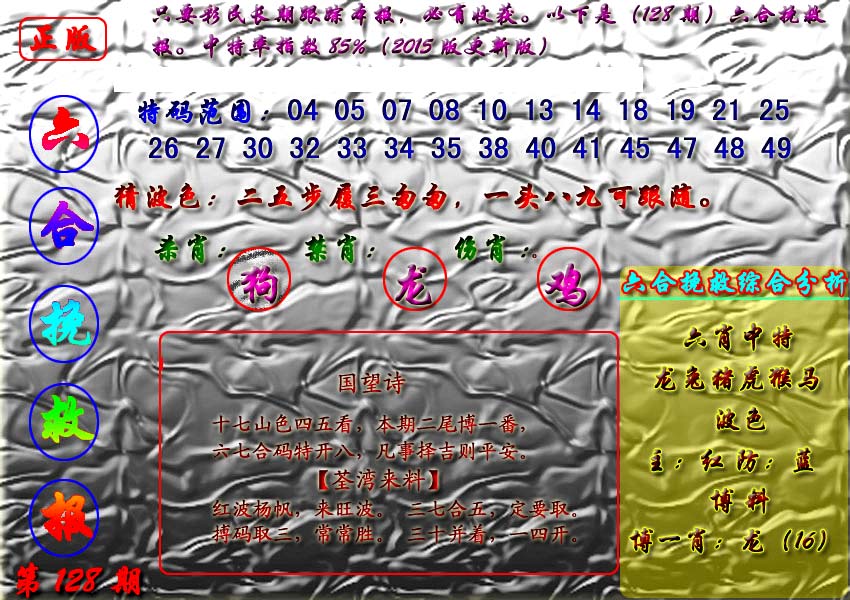 正版
只要彩民长期跟踪本报，必有收获。以下是（128期）六合挽救
报。中特率指数85%（2015版更新版）
六合挽救报
第128期
特码范围：04 05 07 08 10 13 14 18 19 21 25
26 27 30 32 33 34 35 38 40 41 45 47 48 49
猜波色：二五步履三匆匆，一头八九可跟随。
杀肖：狗 禁肖：龙 伤肖：鸡
国望诗
十七山色四五看，本期二尾博一番，
六七合码特开八，凡事择吉则平安。
【荃湾来料】
红波杨帆，来旺波。 三七合五，定要取。
搏码取三，常常胜。 三十并着，一四开。
六合挽救综合分析
六肖中特
龙兔猪虎猴马
波色
主：红防：蓝
博料
博一肖：龙（16）